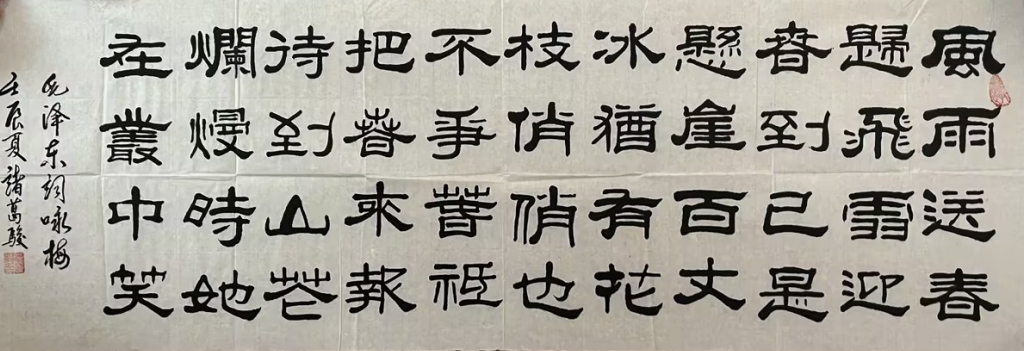 風雨送春
歸飛雪迎
春到已是
懸崖百丈
冰猶有花
枝俏俏也
不爭春祗
把春來報
待到山花
爛熳時她
在叢中笑
毛泽东詞咏梅
壬辰夏諸葛駿